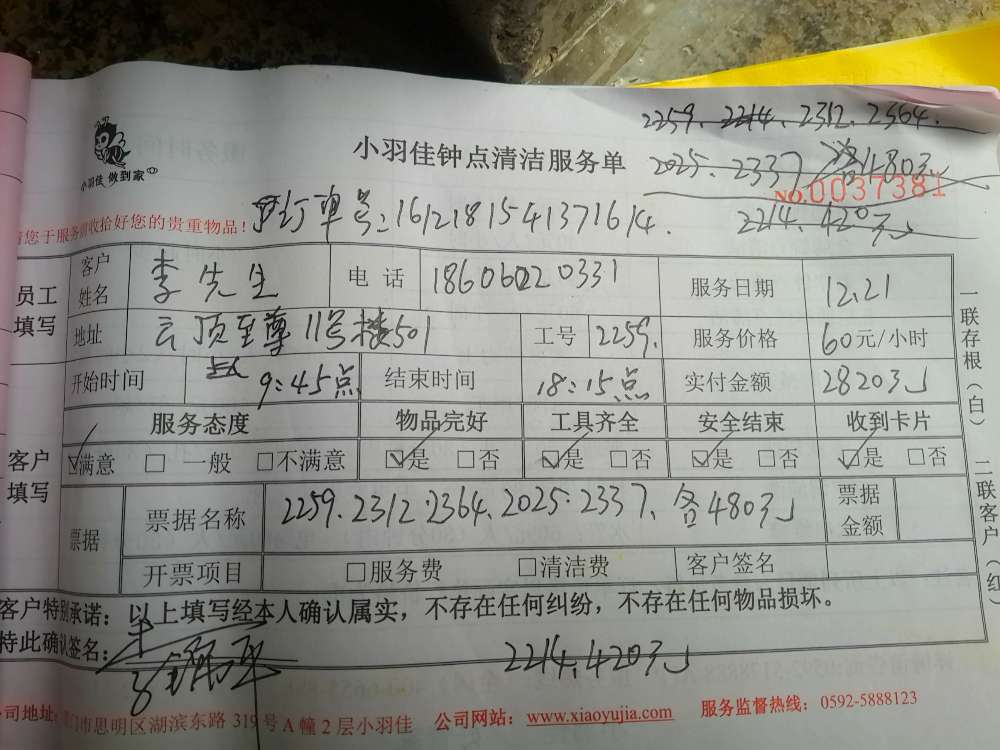 2259、2214、2312、2364、
小羽佳钟点清洁服务单
2025、2337 各480元
小羽佳 做到家
NO.0037381
2214、420元
您于服务前收拾好您的贵重物品!
订单号:1612181541371614
员工填写
客户姓名 李先生 电话 18606020331 服务日期 12.21
地址 云顶至尊11号楼501 工号 2259. 服务价格 60元/小时
开始时间 9:45点 结束时间 18:15点 实付金额 2820元
客户填写
服务态度 物品完好 工具齐全 安全结束 收到卡片
☑满意 □一般 □不满意 ☑是 □否 ☑是 □否 ☑是 □否 ☑是 □否
票据 票据名称 2259、2312、2364、2025、2337、各480元 票据金额
开票项目 □服务费 □清洁费 客户签名
一联存根(白) 二联客户(红)
客户特别承诺:以上填写经本人确认属实,不存在任何纠纷,不存在任何物品损坏。
特此确认签名:
2214、420元
公司地址:厦门市思明区湖滨东路319号A幢2层小羽佳 公司网站:www.xiaoyujia.com 服务监督热线:0592-5888123